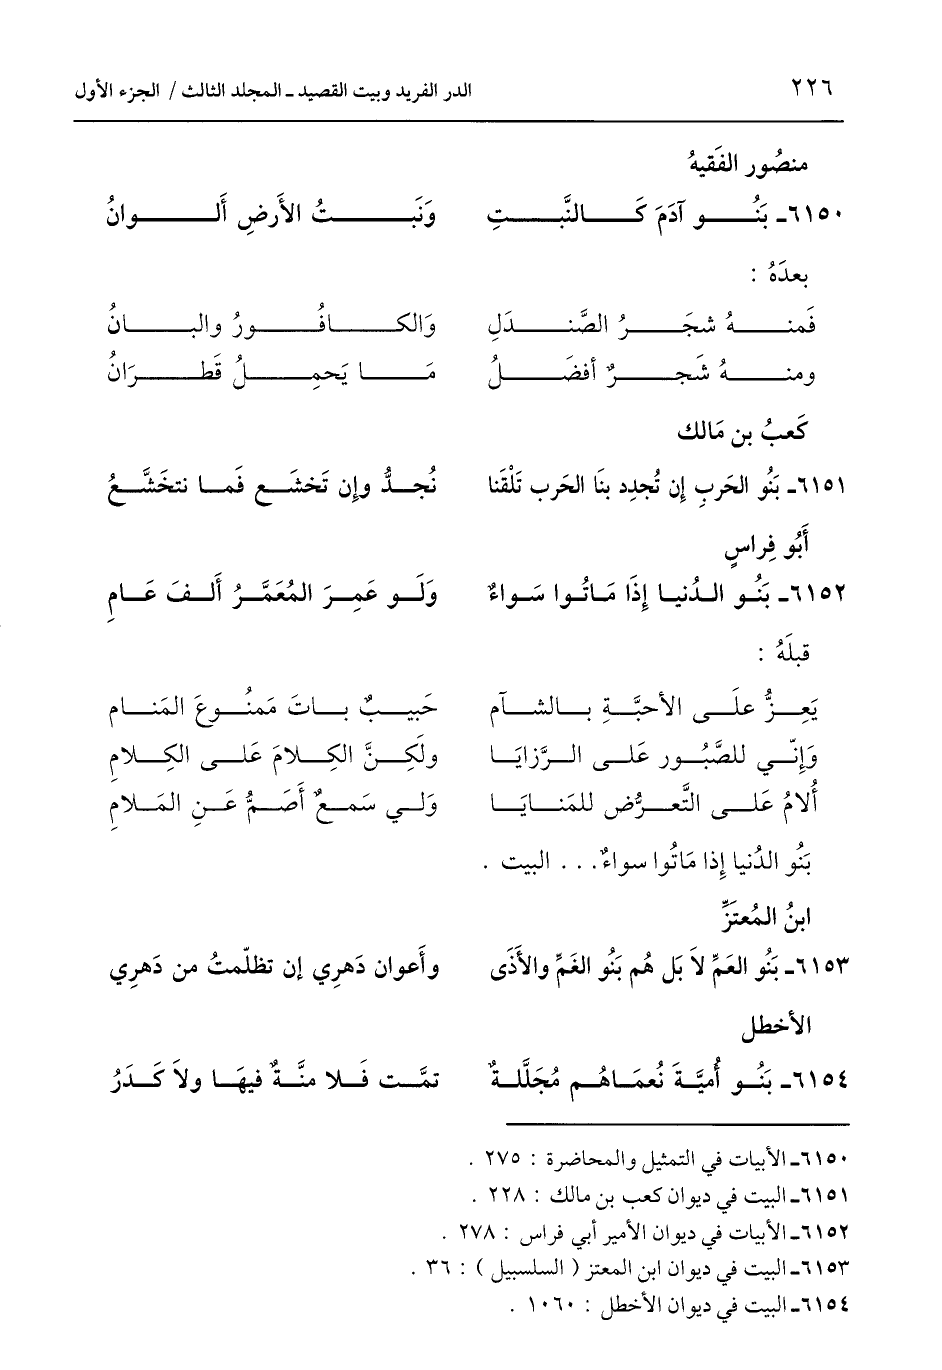 ٢٢٦ الدر الفريد وبيت القصيد ـ المجلد الثالث / الجزء الأول
منصُور الفَقيهُ
٦١٥٠ـ بَنُو آدَمَ كَالنَّبتِ وَنَبتُ الأَرضِ أَلوانُ
بعدَهُ :
فَمنهُ شجَرُ الصَّندَلِ وَالكافُورُ والبانُ
ومنهُ شَجرٌ أفضَلُ مَا يَحمِلُ قَطرَانُ
كَعبُ بن مَالك
٦١٥١ـ بَنُو الحَربِ إن تُجدِد بنَا الحَرب تَلْقَنا نُجدُّ وإن تَخشَع فَما نتخَشَّعُ
أَبُو فِراسٍ
٦١٥٢ـ بَنُو الدُنيا إذَا مَاتُوا سَواءٌ وَلَو عَمِرَ المُعَمَّرُ أَلفَ عَامِ
قبلَهُ :
يَعِزُّ علَى الأحبَّةِ بالشآم حَبيبٌ باتَ مَمنُوعَ المَنام
وَإنّي للصَّبُور عَلى الرَّزايَا ولَكِنَّ الكِلامَ عَلى الكِلامِ
أُلامُ عَلى التَّعرُّض للمَنايَا وَلي سَمعٌ أَصَمُّ عَنِ المَلامِ
بَنُو الدُنيا إذا مَاتُوا سواءٌ. . . البيت .
ابنُ المُعتَزِّ
٦١٥٣ـ بَنُو العَمِّ لاَ بَل هُم بَنُو الغَمِّ والأَذَى وأَعوان دَهرِي إن تظلّمتُ من دَهرِي
الأخطل
٦١٥٤ـ بَنُو أُميَّةَ نُعمَاهُم مُجَلَّلةٌ تمَّت فَلا منَّةٌ فيهَا ولاَ كَدَرُ
٦١٥٠ـ الأبيات في التمثيل والمحاضرة : ٢٧٥ .
٦١٥١ـ البيت في ديوان كعب بن مالك : ٢٢٨ .
٦١٥٢ـ الأبيات في ديوان الأمير أبي فراس : ٢٧٨ .
٦١٥٣ـ البيت في ديوان ابن المعتز ( السلسبيل ) : ٣٦ .
٦١٥٤ـ البيت في ديوان الأخطل : ١٠٦٠ .